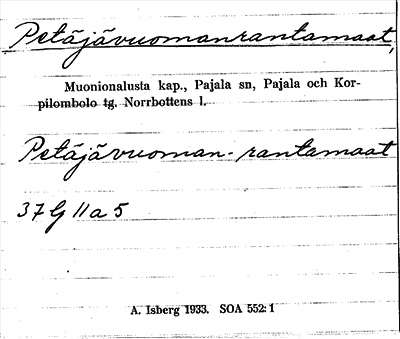 Petäjävuomanrantamaat,
Muonionalusta kap., Pajala sn, Pajala och Kor-
pilombolo tg. Norrbottens l.
Petäjävuoman-rantamaat
37 G 11 a 5
A. Isberg 1933. SOA 552: 1